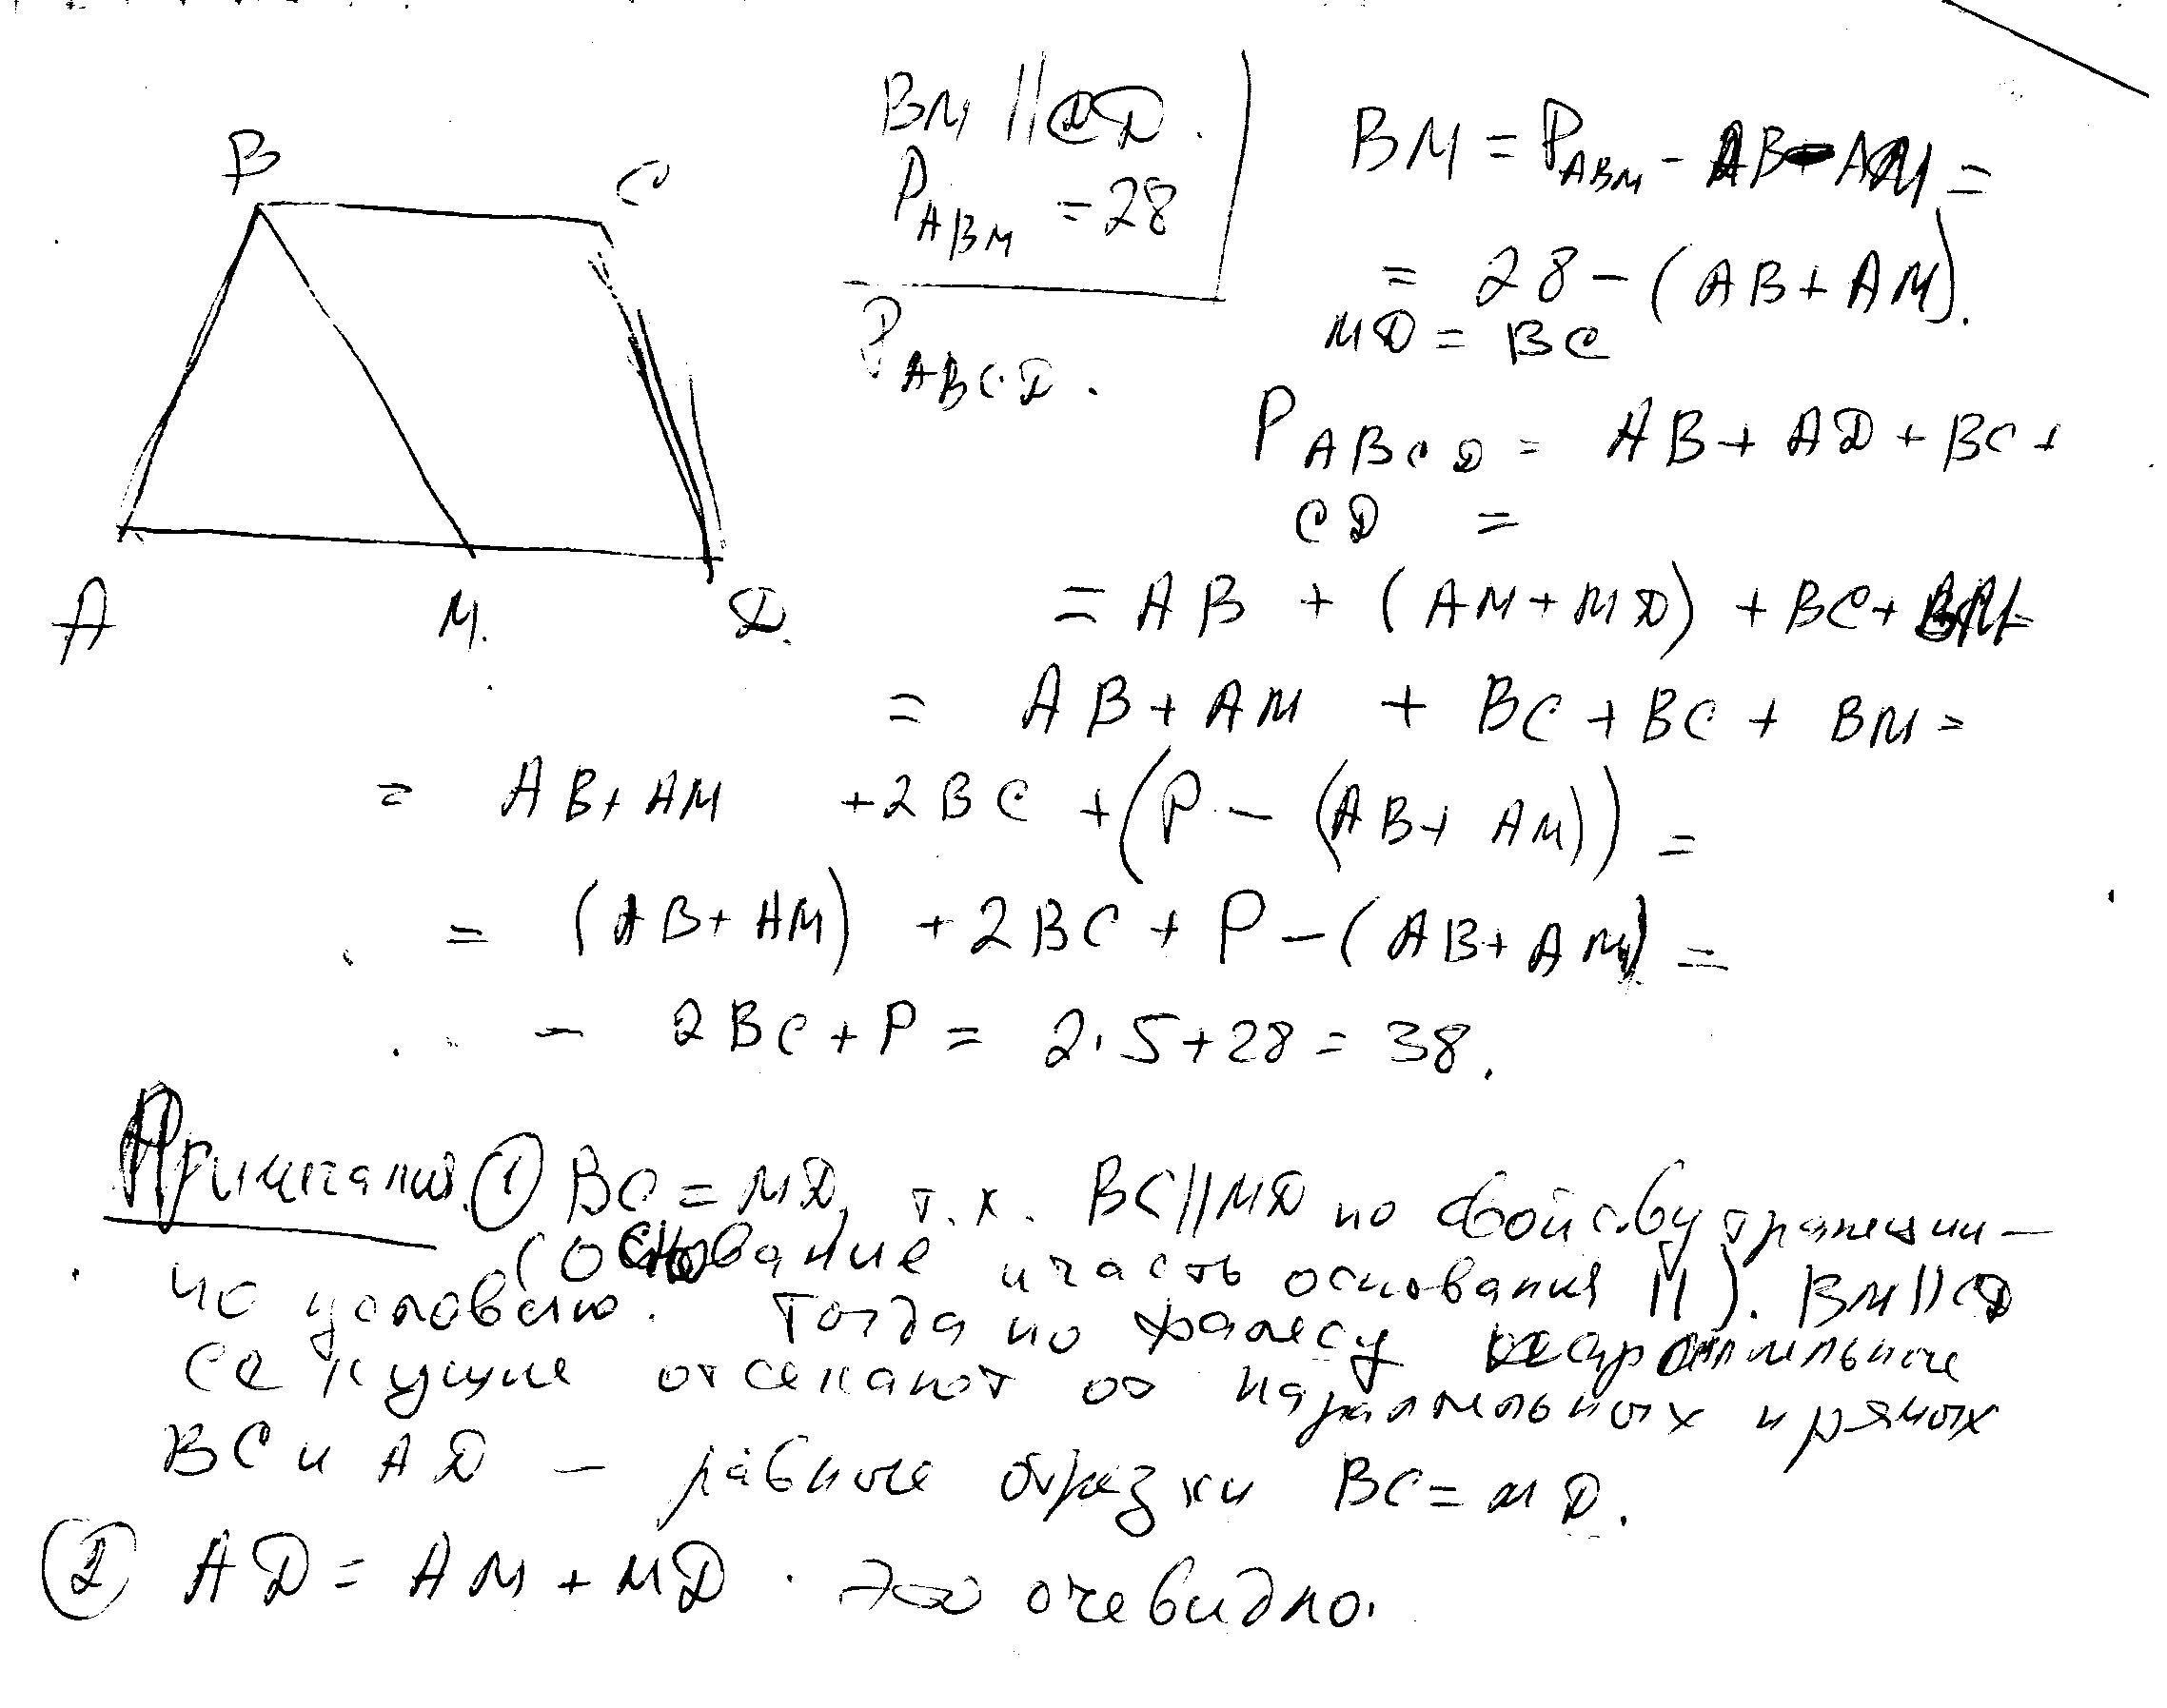 B
C
A
M.
D.
BM || CD.
P ABM = 28
P ABCD.
BM = P ABM - AB - AM =
= 28 - (AB + AM).
MD = BC
P ABCD = AB + AD + BC +
CD =
= AB + (AM + MD) + BC + BM =
= AB + AM + BC + BC + BM =
= AB + AM + 2BC + (P - (AB + AM)) =
= (AB + AM) + 2BC + P - (AB + AM) =
- 2BC + P = 2·5 + 28 = 38.
Примечания. ① BC = MD, т.к. BC || MD по свойству трапеции —
(основание и часть основания ||). BM || CD
по условию. Тогда по Фалесу
секущие отсекают от паралельных прямых
BC и AD — равные отрезки BC = MD.
② AD = AM + MD. это очевидно.